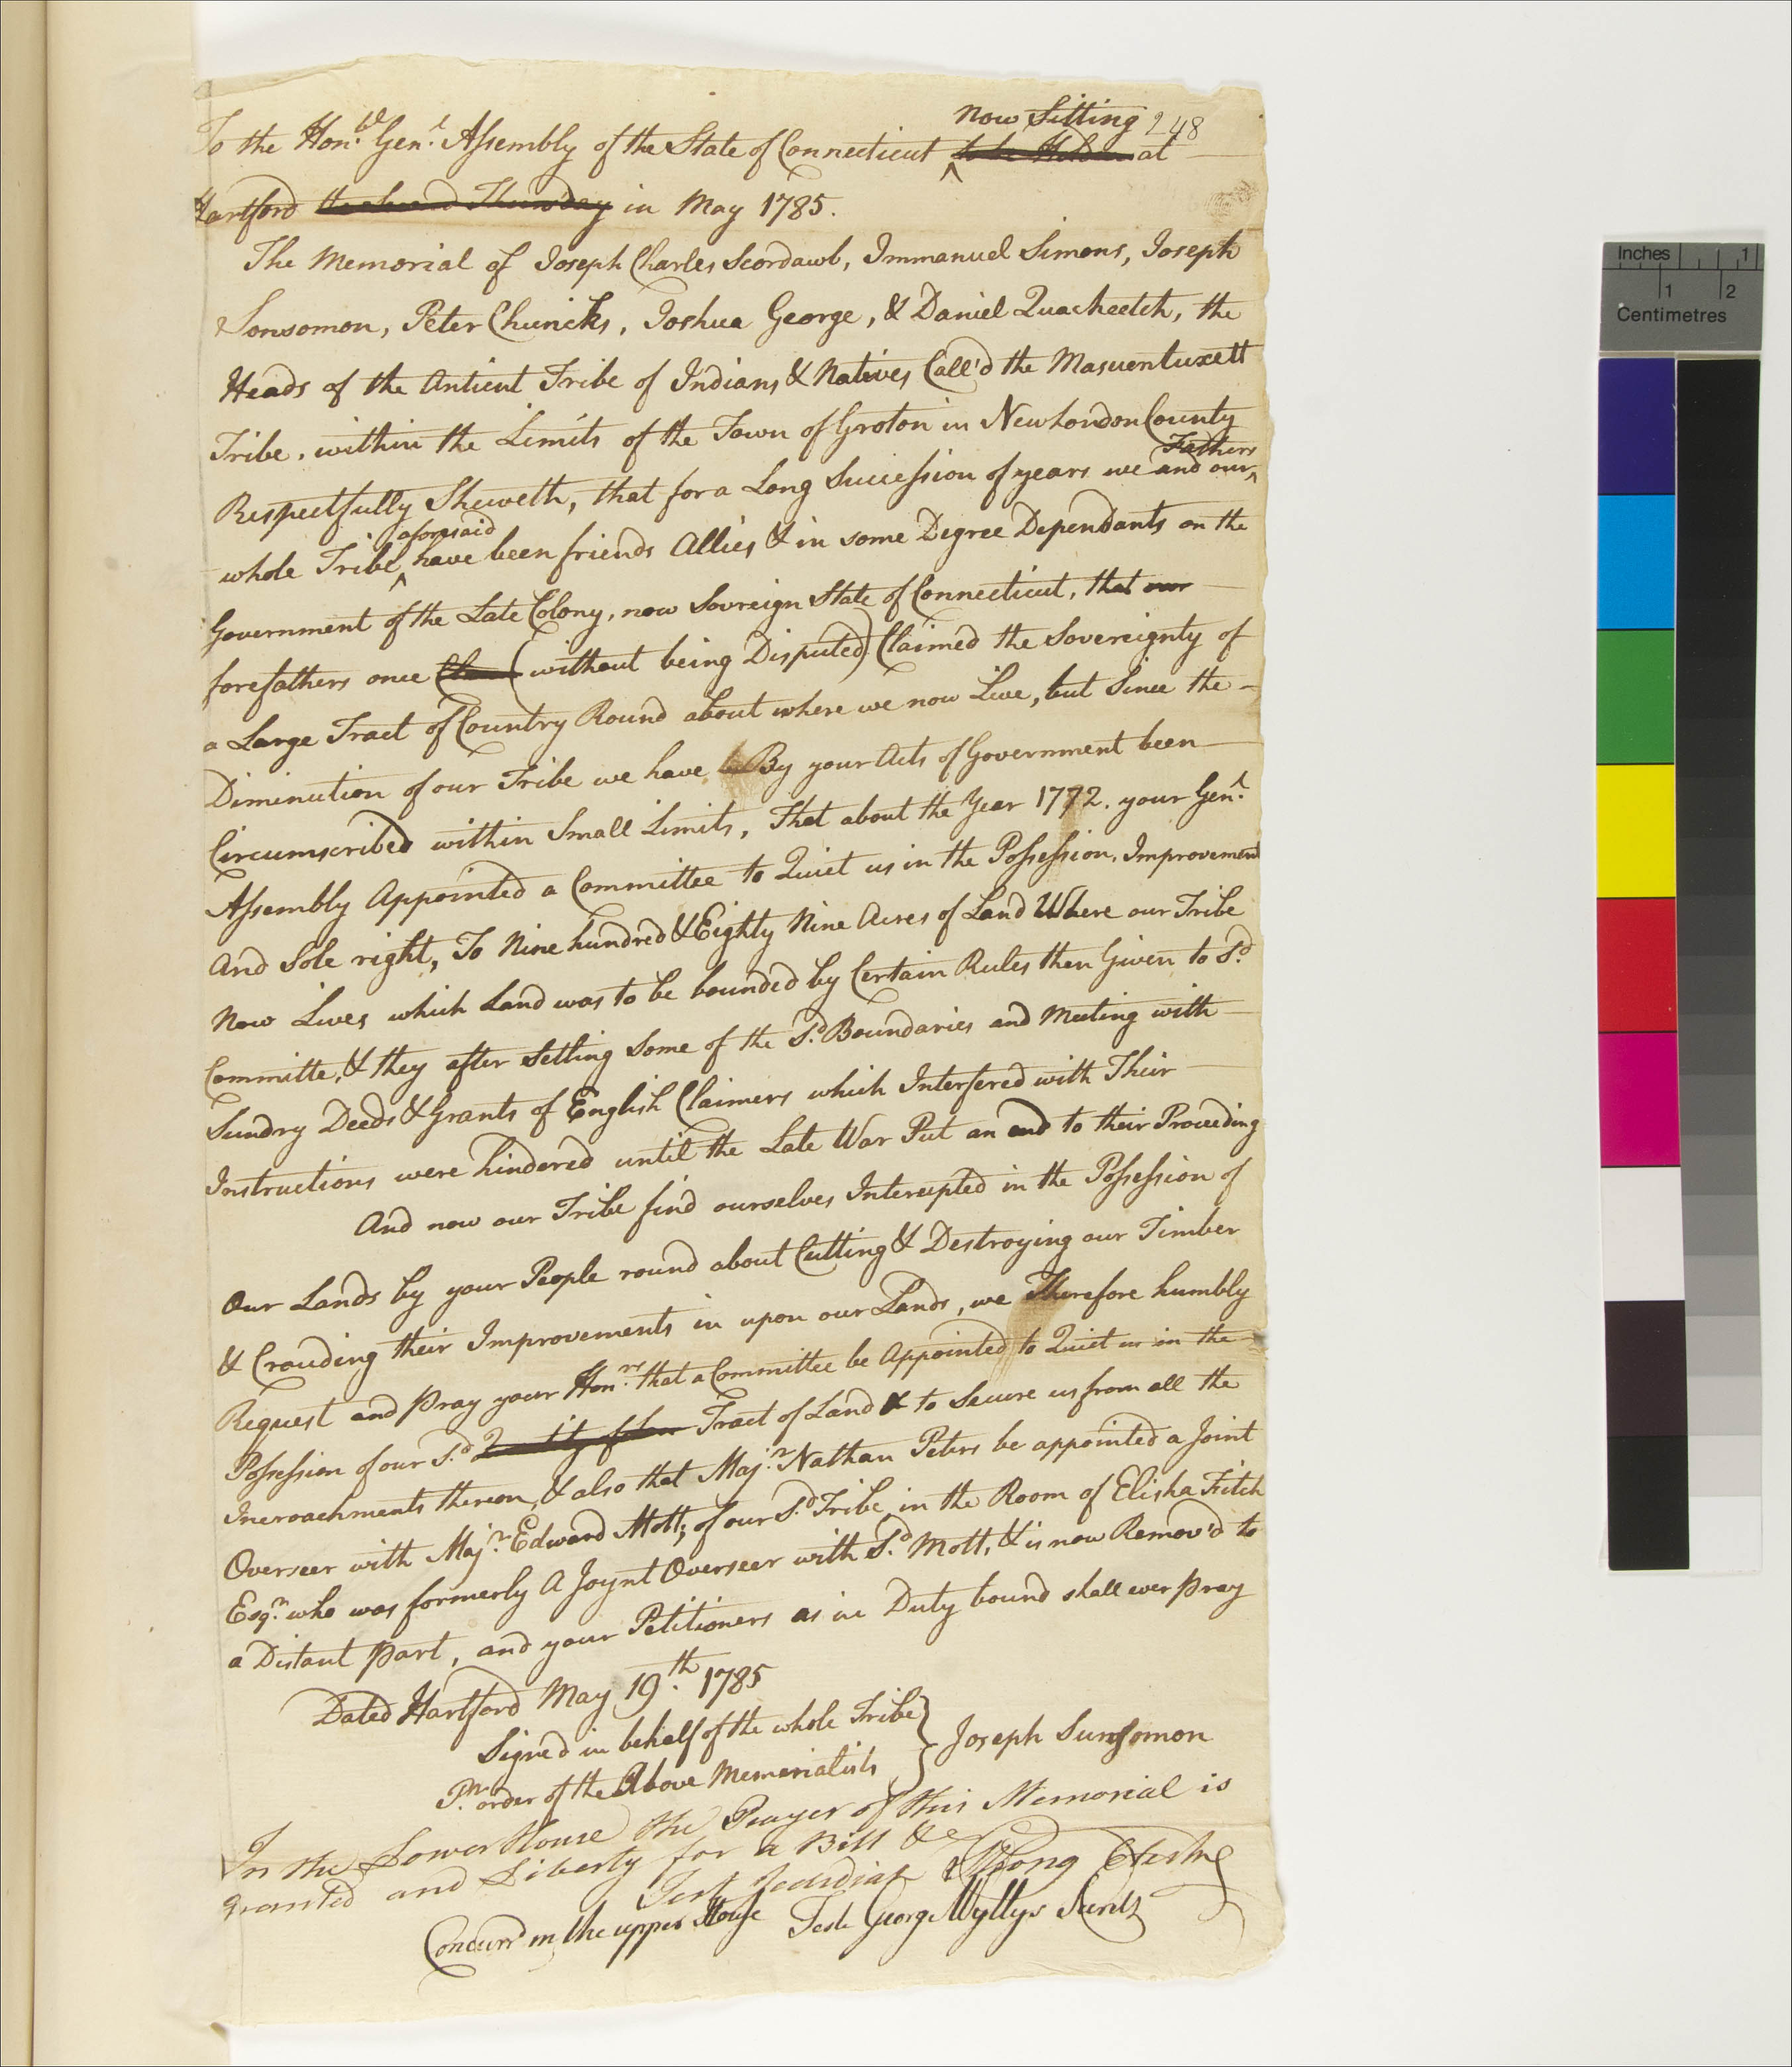 now Sitting 248
To the Hon.ble Gen.l Assembly of the State of Connecticut to be Holden at
Hartford the second Thursday in May 1785.
The Memorial of Joseph Charles Scordawb, Immanuel Simons, Joseph
Sonsomon, Peter Chunicks, Joshua George, & Daniel Quacheetch, the
Heads of the Antient Tribe of Indians & Natives Call'd the Masuentuxett
Tribe, within the Limits of the Town of Groton in New London County
Respectfully Sheweth, that for a Long Succession of years we and our Fathers
whole Tribe aforesaid have been friends Allies & in some Degree Dependants on the
Government of the Late Colony, now Sovreign State of Connecticut, that our
forefathers once (without being Disputed) Claimed the Sovereignty of
a Large Tract of Country Round about where we now Live, but Since the
Diminution of our Tribe we have be By your Acts of Government been
Circumscribed within Small Limits, That about the Year 1772. your Gen.l
Assembly Appointed a Committee to Quiet us in the Possession, Improvement
And Sole right, To Nine hundred & Eighty Nine Acres of Land Where our Tribe
Now Lives which Land was to be bounded by Certain Rules then Given to S.d
Committe, & they after Setling Some of the S.d Boundaries and Meeting with
Sundry Deeds & Grants of English Claimers which Interfered with Their
Instructions were hindered until the Late War Put an end to their Proceeding
And now our Tribe find ourselves Interupted in the Possession of
Our Lands by your People round about Cutting & Destroying our Timber
& Crouding their Improvements in upon our Lands, we Therefore humbly
Request and pray your Hon.rs that a Committee be Appointed to Quiet us in the
Possession of our S.d Quantity of Lan Tract of Land & to Secure us from all the
Incroachments thereon, & also that Maj.r Nathan Peters be appointed a Joint
Overseer with Maj.r Edward Mott, of our S.d Tribe in the Room of Elisha Fitch
Esq.r who was formerly A Joynt Overseer with S.d Mott, & is now Remov'd to
a Distant part, and your Petitioners as in Duty bound shall ever pray
Dated Hartford May 19.th 1785
Signed in behalf of the whole Tribe
P.r order of the Above Memorialists } Joseph Sunsomon
In the Lower House the Prayer of this Memorial is
granted and Liberty for a Bill &c
Test Jedidiah Strong Clerk
Concurr'd in the upper House Teste George Wyllys Secret.y